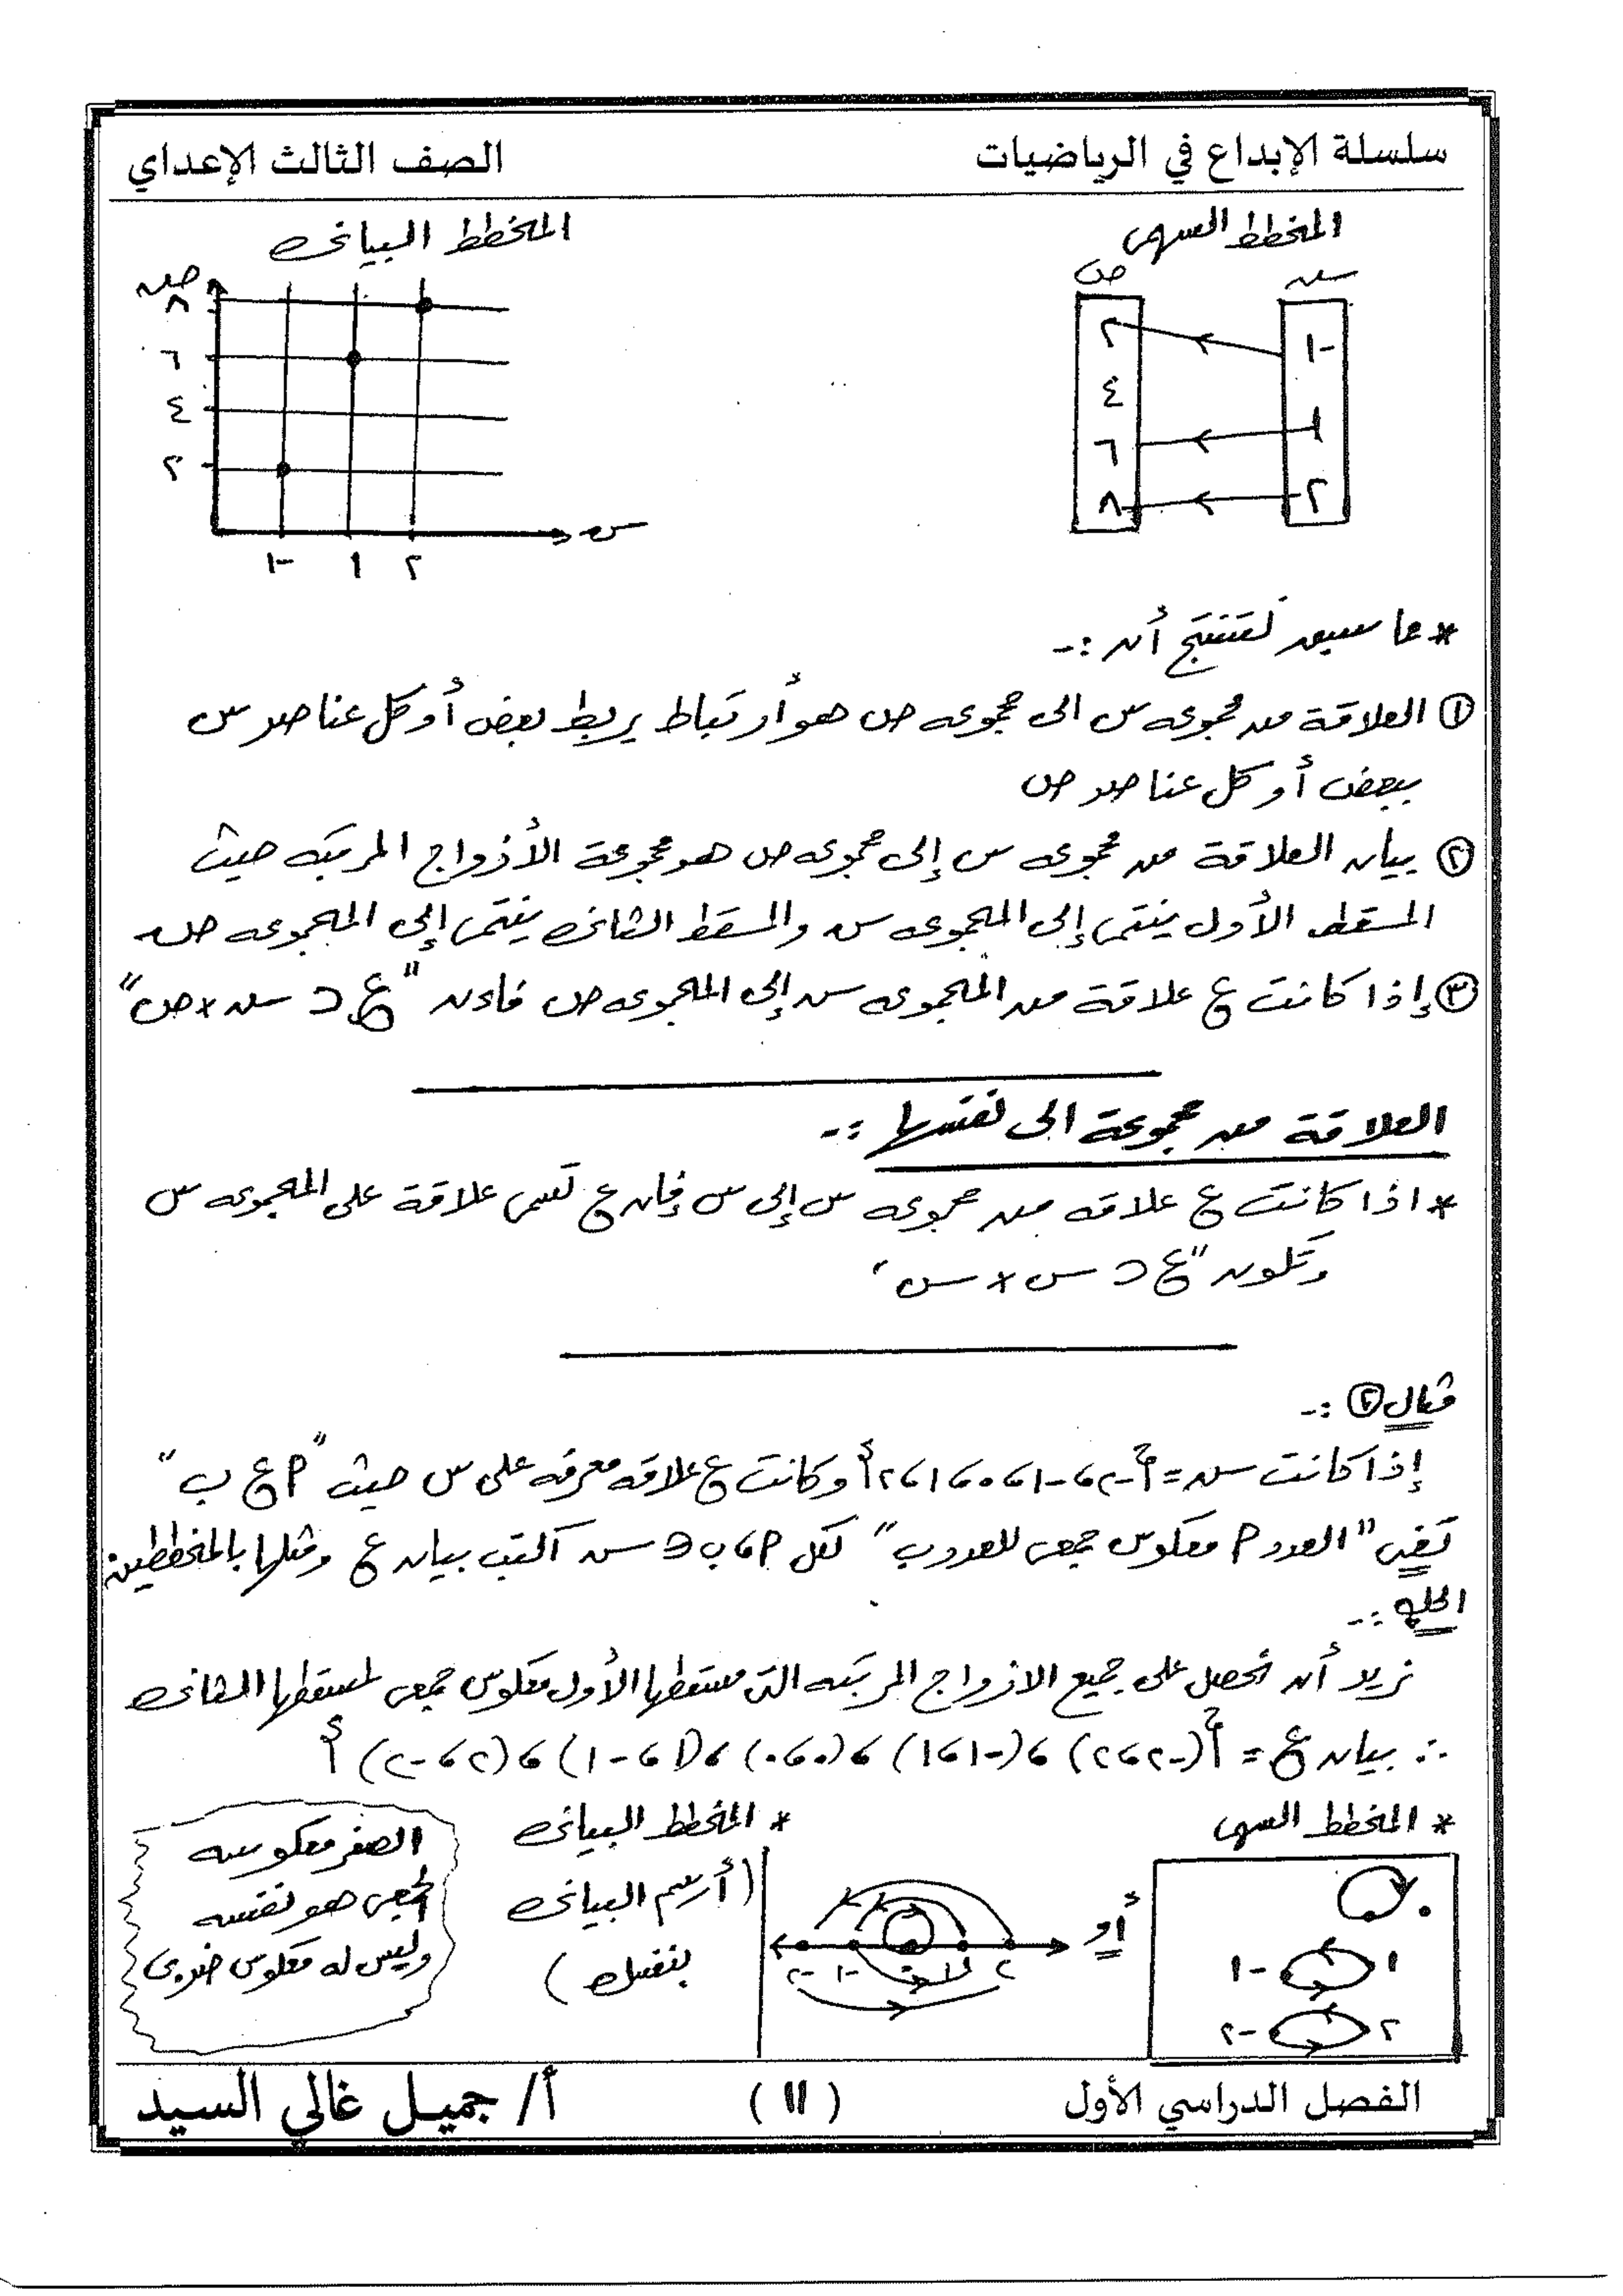 سلسلة الإبداع في الرياضيات
الصف الثالث الإعداي
المخطط السهمى
س ص
-١ ٢
٤
١ ٦
٢ ٨
المخطط البيانى
ص
٨
٦
٤
٢
-١ ١ ٢ س
* مما سبق نستنتج أن :-
① العلاقة من مجموعه س الى مجموعه ص هو أرتباط يربط بعض أو كل عناصر س
ببعض أو كل عناصر ص
② بيان العلاقة من مجموعه س إلى مجموعه ص هو مجموعة الأزواج المرتبه حيث
المسقط الأول ينتمى إلى المجموعه س والمسقط الثانى ينتمى إلى المجموعه ص
③ إذا كانت ع علاقة من المجموعه س إلى المجموعه ص فإن "ع ⊂ س × ص"
العلاقة من مجموعة الى نفسها :-
* اذا كانت ع علاقه من مجموعه س إلى س فإن ع تسمى علاقة على المجموعه س
وتكون "ع ⊂ س × س"
مثال ② :-
إذا كانت س = {-٢، -١، ٠، ١، ٢} وكانت ع علاقه معرفه على س حيث "P ع ب"
تعنى "العدد P معكوس جمعى للعدد ب" لكل P، ب ∈ س اكتب بيان ع ومثلها بالمخططين
الحل :-
نريد أن نحصل على جميع الازواج المرتبه التى مسقطها الأول معكوس جمعى لمسقطها الثانى
∴ بيان ع = {(-٢، ٢)، (-١، ١)، (٠، ٠)، (١، -١)، (٢، -٢)}
* المخطط السهمى
٠
١ -١
٢ -٢
أو
-٢ -١ ٠ ١ ٢
* المخطط البيانى
(أرسم البيانى
بنفسك)
الصفر معكوسه
الجمعى هو نفسه
وليس له معكوس ضربى
الفصل الدراسي الأول
(١١)
أ/ جميل غالي السيد